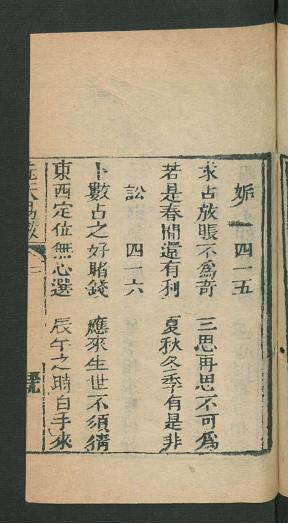 姤 四一五
求占放賬不為奇 三思再思不可為
若是春間還有利 夏秋冬季有是非
訟 四一六
卜數占之好賭錢 應來生世不須猜
東西定位無心選 辰午之時白手來
先天易數